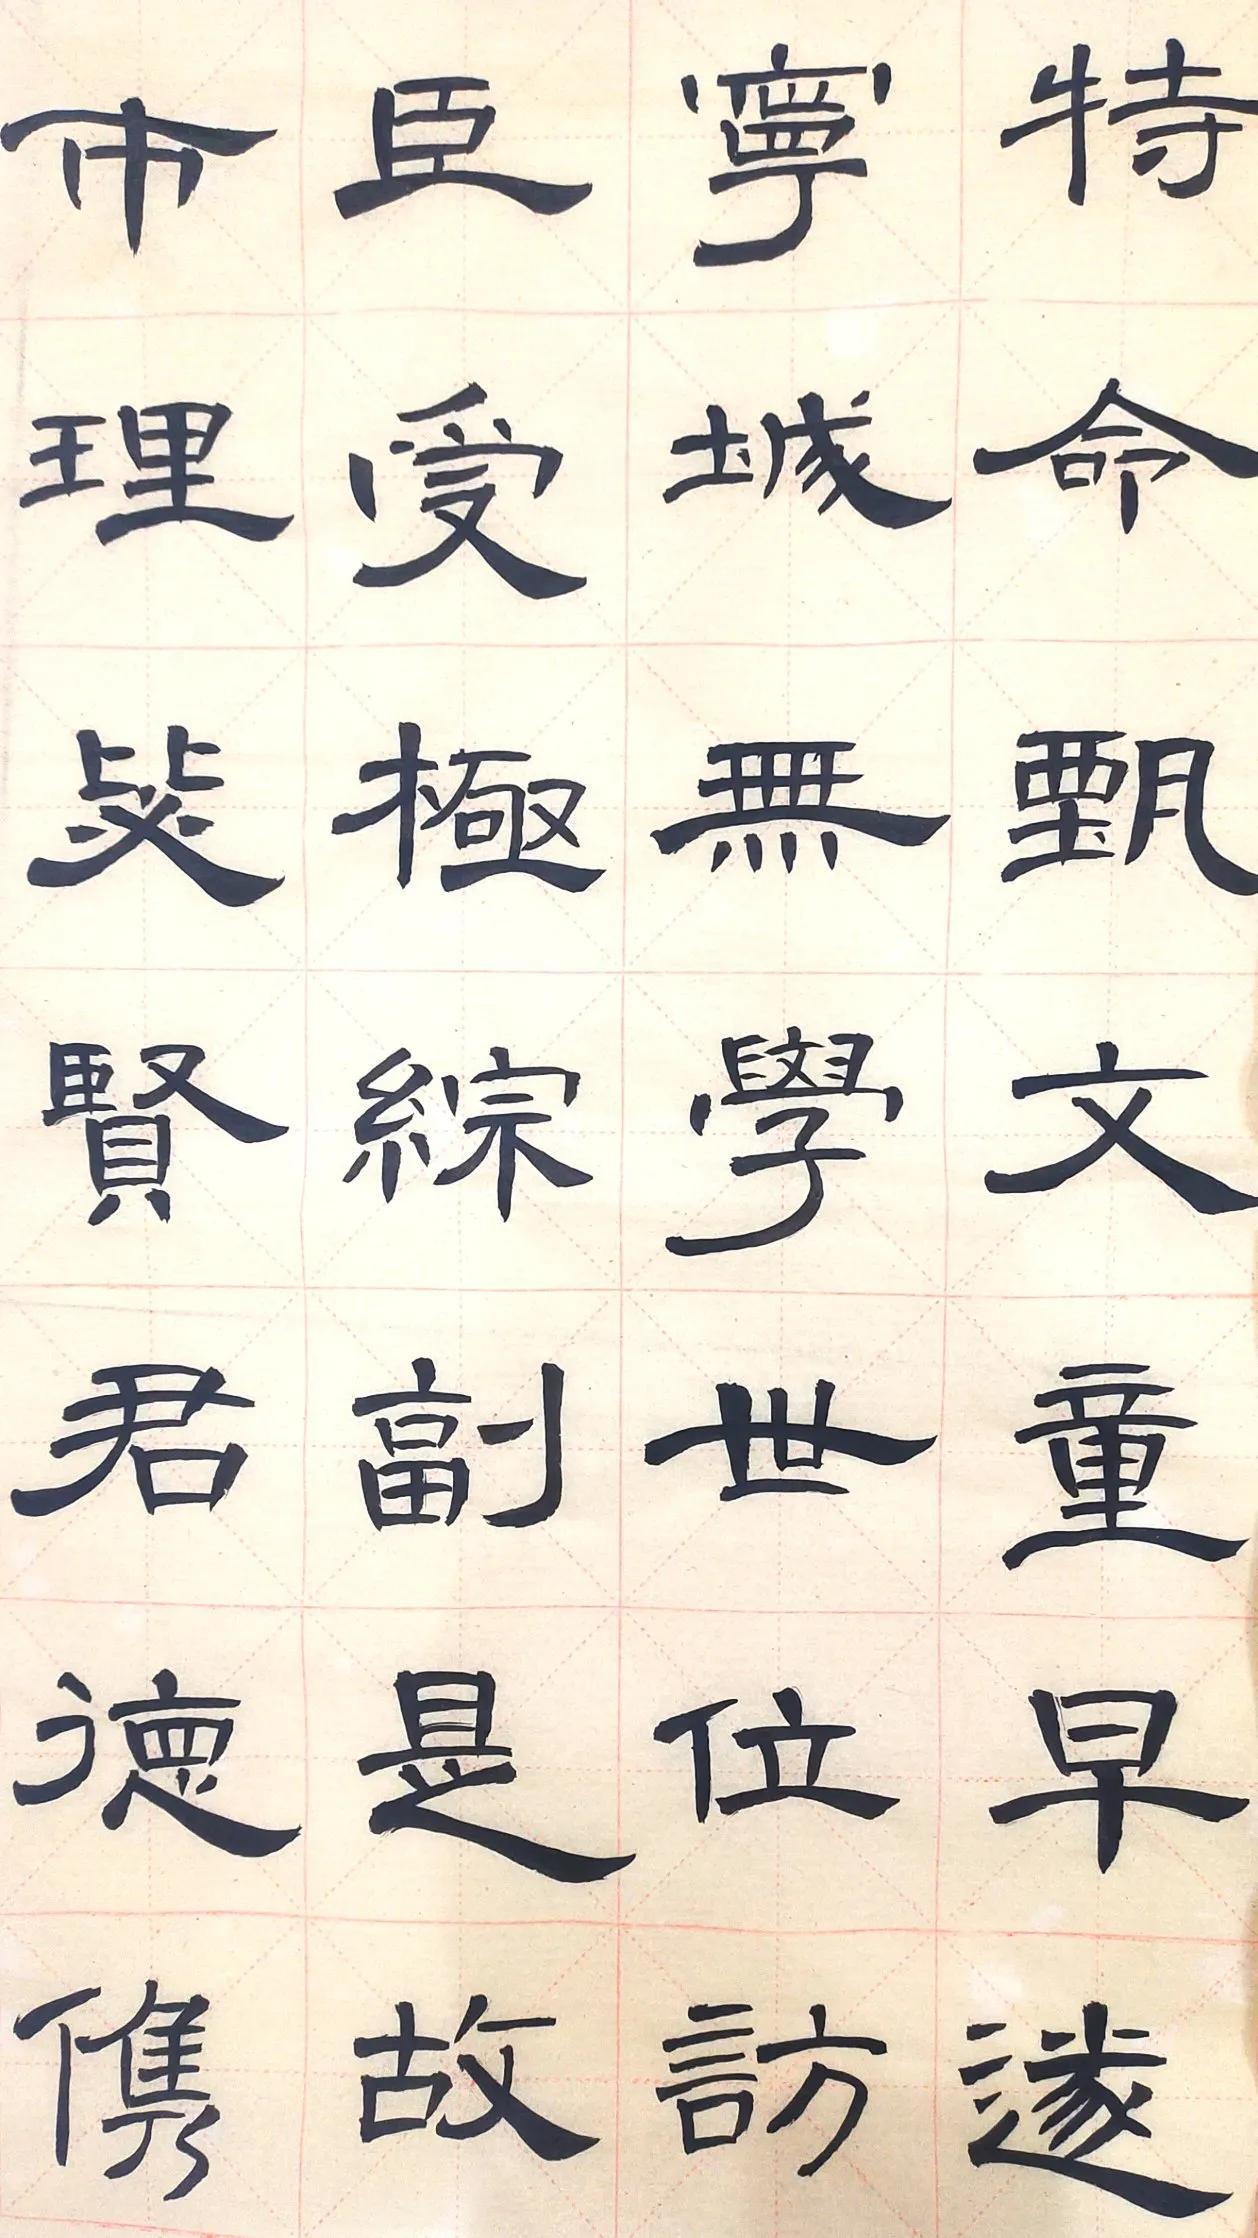 特命甄文童早遂
寧城無學世位訪
臣受極綜副是故
市理賢君德儁